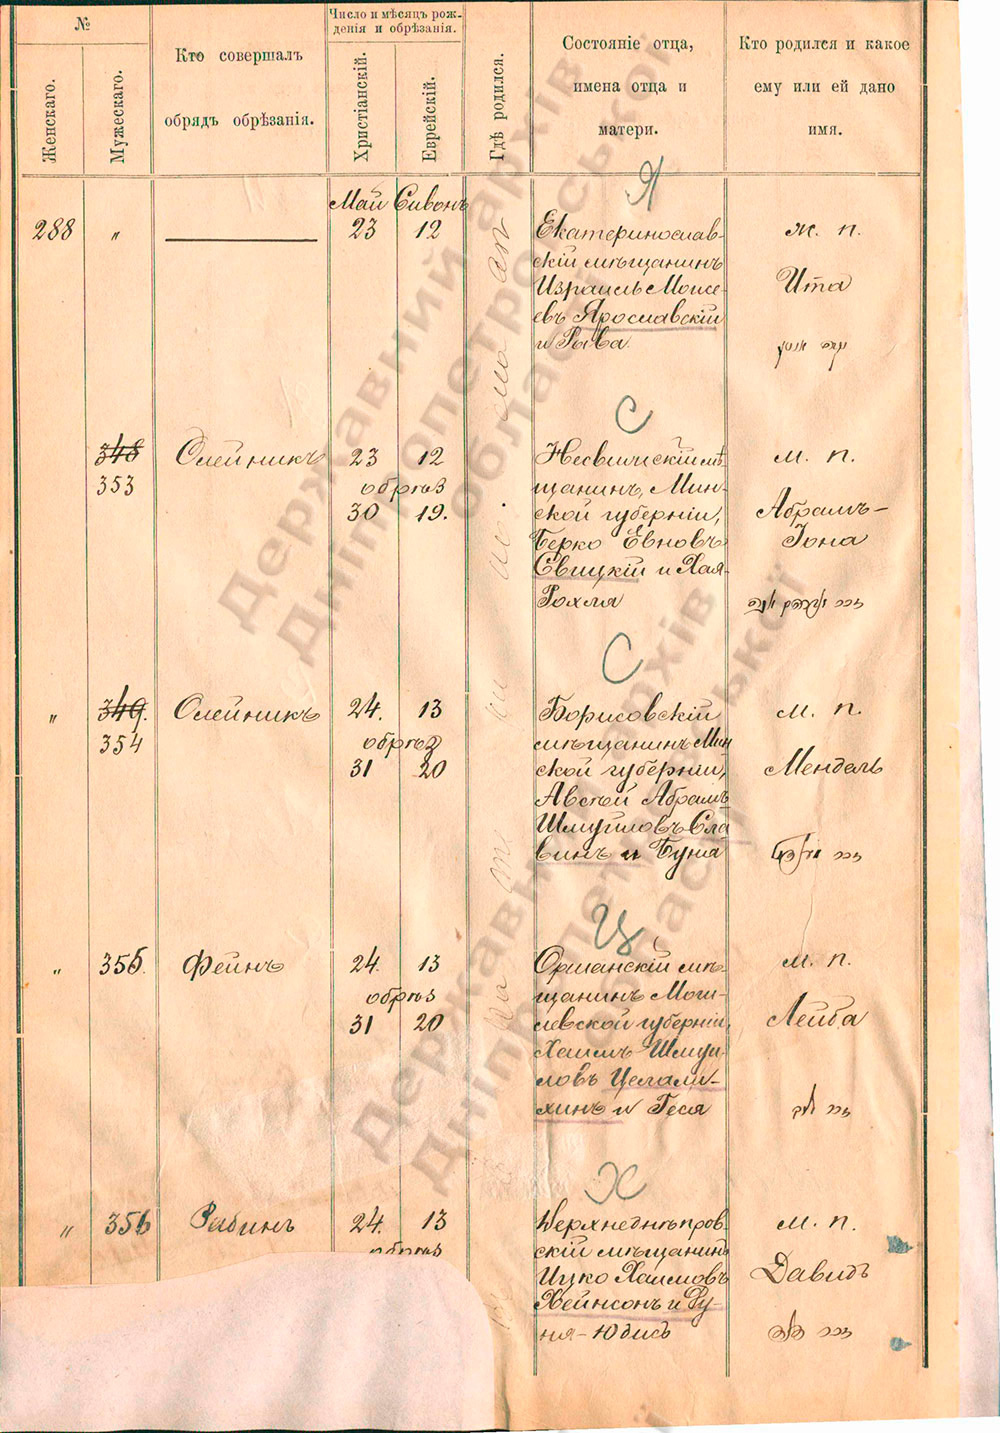 №
Женскаго.
Мужескаго.
Кто совершалъ
обрядъ обрѣзанія.
Число и мѣсяцъ рож-
денія и обрѣзанія.
Христіанскій.
Еврейскій.
Гдѣ родился.
Состояніе отца,
имена отца и
матери.
Кто родился и какое
ему или ей дано
имя.
Я
Май Сивонъ
288 „ 23 12
Екатеринослав-
скій мѣщанинъ
Израиль Моисе-
евъ Ярославскій
и Рыва
ж. п.
Ита
С
348
353
Олейникъ
23 12
обрѣз
30 19.
Несвижскій мѣ-
щанинъ, Мин-
ской губерніи,
Берко Евновъ
Свицкій и Хая-
Рохля
м. п.
Абрамъ-
Іона
זכר
С
„ 349.
354
Олейникъ
24. 13
обрѣз
31 20
Борисовскій
мѣщанинъ Мин
ской губерніи,
Авсѣй Абрамъ
Шмуйловъ Сла
винъ и Буня
м. п.
Мендель
זכר
Ц
„ 355. Фейнъ
24. 13
обрѣз
31 20
Оршанскій мѣ-
щанинъ Моги-
левской губерніи,
Хаимъ Шмуи-
ловъ Целами-
хинъ и Геся
м. п.
Лейба
זכר
Х
„ 356 Рабинъ
24. 13
обрѣз
Верхнеднѣпров-
скій мѣщанинъ
Ицко Хаимовъ
Хейнсонъ и Ру-
ня-Юдись
м. п.
Давидъ
זכר דוד
Державний архів
Дніпропетровської
області
Державний архів
Дніпропетровської
області